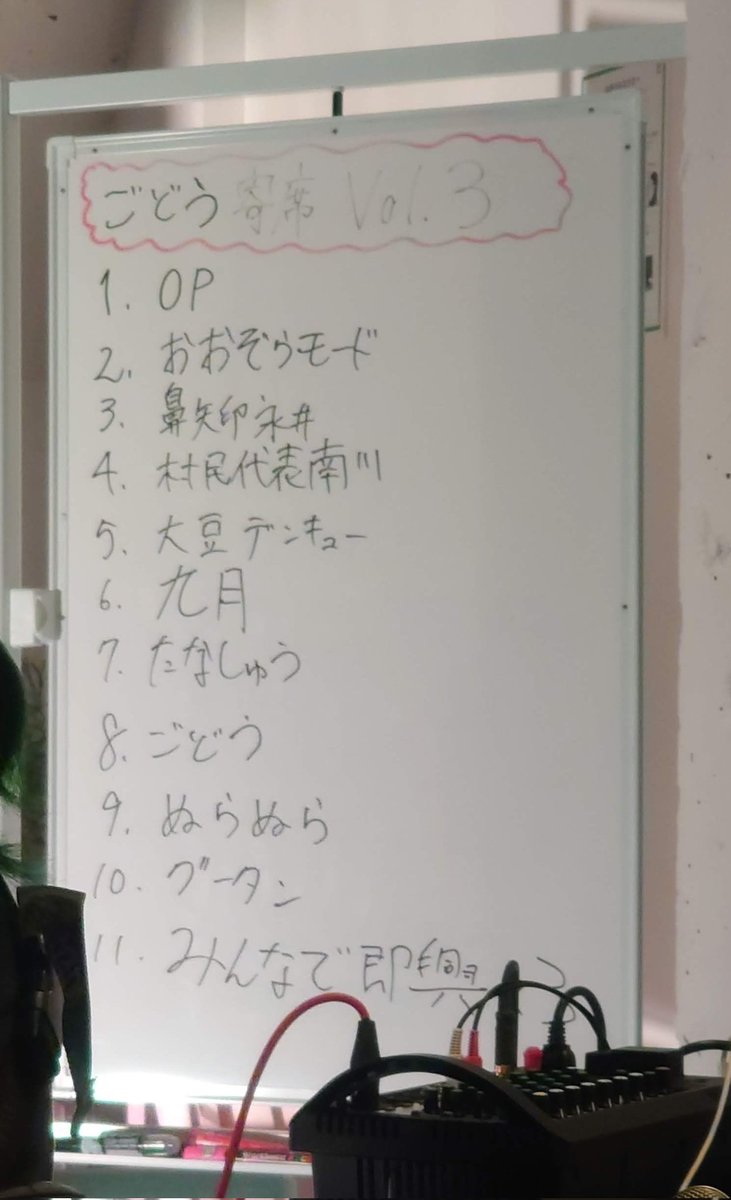 ごどう寄席 Vol.3
1. OP
2. おおぞらモード
3. 鼻矢印永井
4. 村民代表南川
5. 大豆デンキュー
6. 九月
7. たなしゅう
8. ごどう
9. ぬらぬら
10. グータン
11. みんなで即興